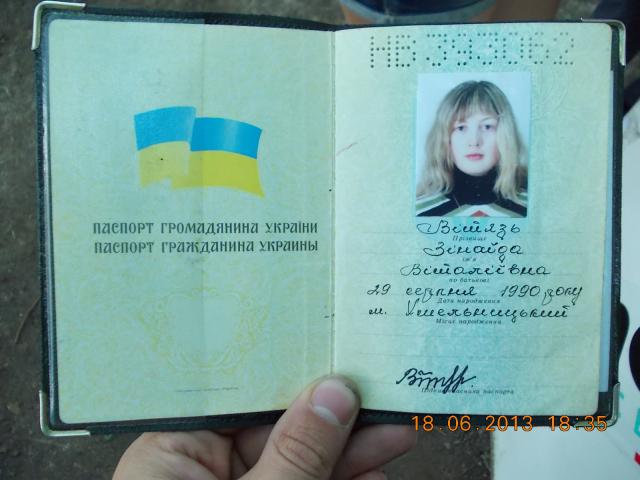 ПАСПОРТ ГРОМАДЯНИНА УКРАЇНИ
ПАСПОРТ ГРАЖДАНИНА УКРАИНЫ
НВ 393062
Вітязь
Прізвище
Зінаїда
ім'я
Віталіївна
по батькові
29 серпня 1990 року
Дата народження
м. Хмельницький
Місце народження
Підпис власника паспорта
18.06.2013 18:35